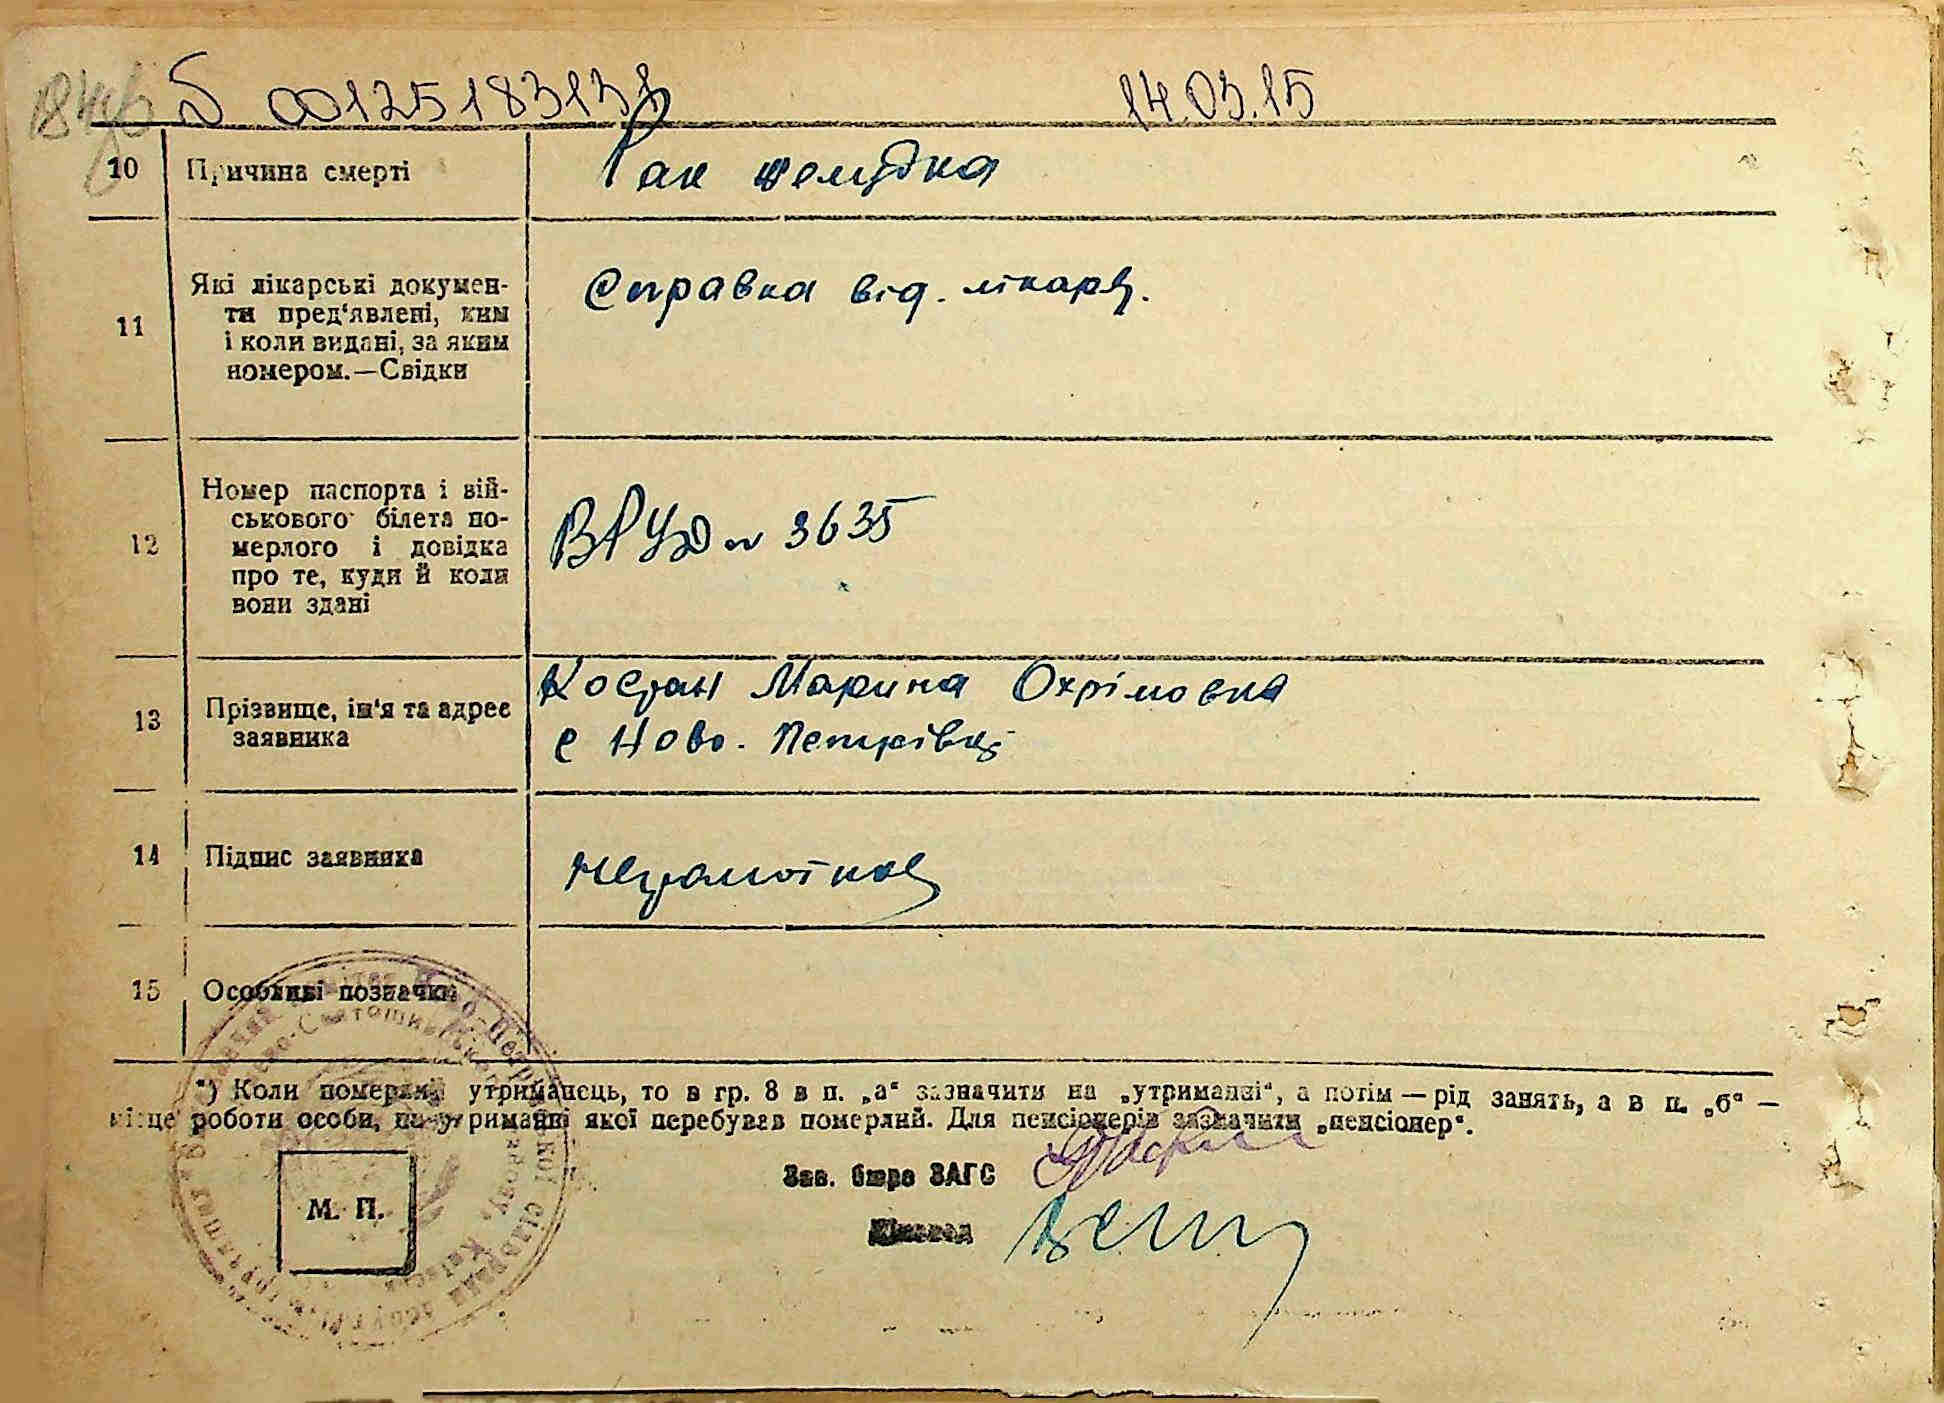 00125183131 14.03.15
10 Причина смерті Рак желудка
11 Які лікарські докумен-
ти пред'явлені, ким
і коли видані, за яким
номером.—Свідки
Справка від. лікаря.
12 Номер паспорта і вій-
ськового білета по-
мерлого і довідка
про те, куди й коли
вони здані
3635
13 Прізвище, ім'я та адрес
заявника
Костан Марина Охрімовна
с Ново. Петрівці
14 Підпис заявника неграмотная
15 Особливі позначки
*) Коли померлий утриманець, то в гр. 8 в п. „а“ зазначити на „утриманні“, а потім — рід занять, а в п. „б“ —
місце роботи особи, на утриманні якої перебував померлий. Для пенсіонерів зазначити „пенсіонер“.
Зав. бюро ЗАГС
М. П.
Діловод